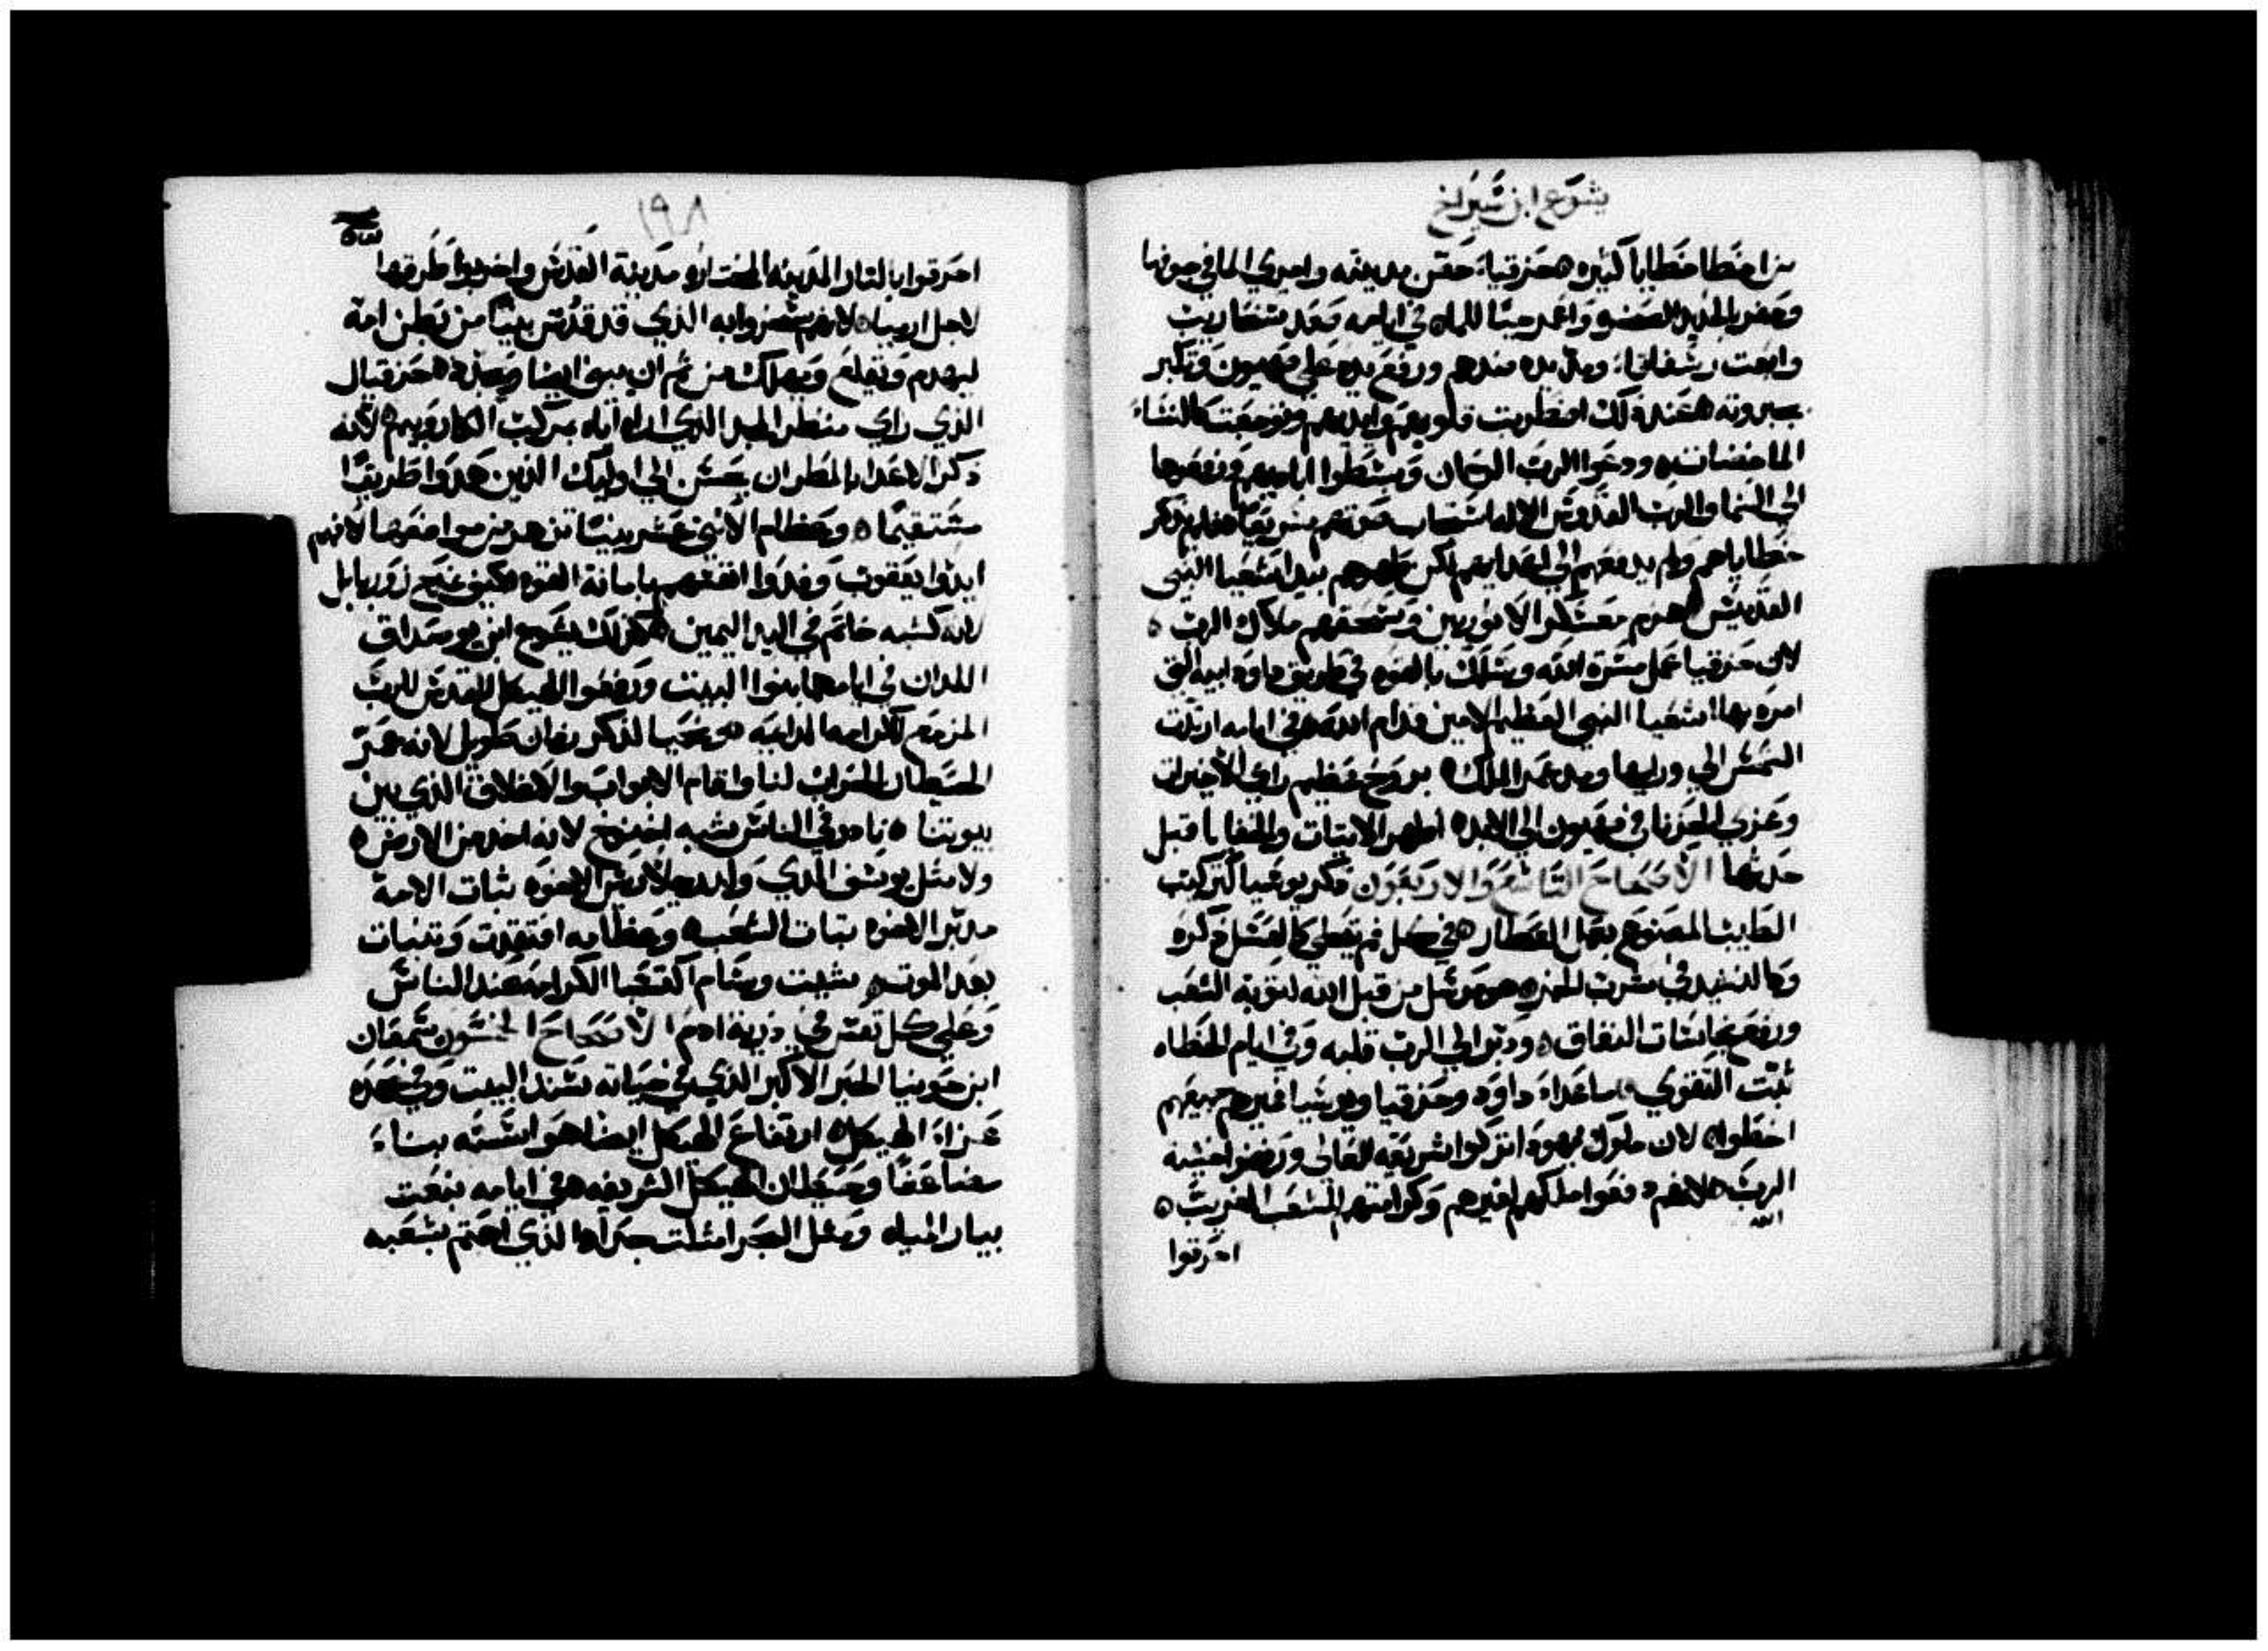 يشوع ابن شيراخ
من اخطا خطايا كثيره حزقيا حصن مدينته واجري الما في جوفها
وحفر بالحديد الصخر وابتنا جبا للماء في ايامه صعد سنحاريب
وابعت رشفاقا ومد يده ضدهم ورفع يده علي صهيون وتكبر
بجبروته عند ذلك اضطربت قلوبهم وايديهم وتوجعت كالنساء
الماخضات ودعوا الرب الرحان وبسطوا اياديهم ورفعوها
الي السما والرب القدوس الاله استجاب صوتهم سريعا لم يذكر
خطاياهم ولم يدفعهم الي اعدايهم لكن طهرهم بيد اشعيا النبي
القديس هزم معسكر الاثوريين وسحقهم ملاك الرب
لان حزقيا عمل مسرة الله وسلك بالقوه في طريق داود ابيه التي
امره بها اشعيا النبي العظيم الامين قدام الله في ايامه ارتدت
الشمس الي ورايها ومد عمر الملك بروح عظيم راي الاخيرات
وعزي الحزنا في صهيون الي الابد اظهر الاتيات والخفايا قبل
حدثها الاصحاح التاسع والاربعون ذكر يوشيا كتركيب
الطيب المصنوع بعمل العطار في كل فم تعطي كالعسل ذكره
وكالنشيد في مشرب الخمر هو مرسل من قبل الله لتوبة الشعب
ورفع نجاسات النفاق ودبر الي الرب قلبه وفي ايام الخطاه
ثبت التقوي ماعدا داود وحزقيا ويوشيا غيرهم جميعهم
اخطوا لان ملوك يهودا تركوا شريعة العالي ورفضوا خشية
الرب لانهم دفعوا ملكهم لغيرهم وكرامتهم لشعب الغريب
الله
احرقوا
١٩٨
احرقوا بالنار المدينه المختاره مدينة القدس واخربوا طرقها
لاجل ارميا لانهم شهزوا به الذي قد قدس نبيا من بطن امه
ليهدم ويقلع ويهلك من ثم ان يبني ايضا ويجدد حزقيال
الذي راي منظر المجد الذي اراه اياه بمركبة الكاروبيم لانه
ذكر الاعدا بالمطر ان يحسن الي اوليك الذين هدوا طريقا
مستقيما وعظام الاثني عشر نبيا تزهر من مواضعها لانهم
ايدوا يعقوب وفدوا انفسهم بامانة القوه كيف نمدح زوربابل
لانه كشبه خاتم في اليد اليمين كذلك يشوع ابن يوصداق
اللذان في ايامهما بنوا البيت ورفعوا الهيكل المقدس للرب
المزمع لكرامه الدايميه ونحميا لذكر زمان طويل لانه عمر
الحيطان الخراب لنا واقام الابواب والاغلاق الذي بين
بيوتنا نادر في الناس شبه اخنوخ لانه اخذ من الارض
ولا مثل يوسف الذي ولد رييس الاخوه ثبات الامة
مدبر الاخوه ثبات الشعب وعظامه افتقدت وتنبات
بعد الموت شيت وسام اكتسبا الكرامه عند الناس
وعلي كل نفس في ذرية ادم الاصحاح الخمسون سمعان
ابن حونيا الحبر الاكبر الذي في حياته سند البيت وفي عهده
عزا الهيكل ارتفاع الهيكل ايضا هو اسسه بناء
مضاعفا وحيطان الهيكل الشريفه في ايامه نبعت
بيار المياه ومثل البحر امتلت جدا الذي اهتم بشعبه